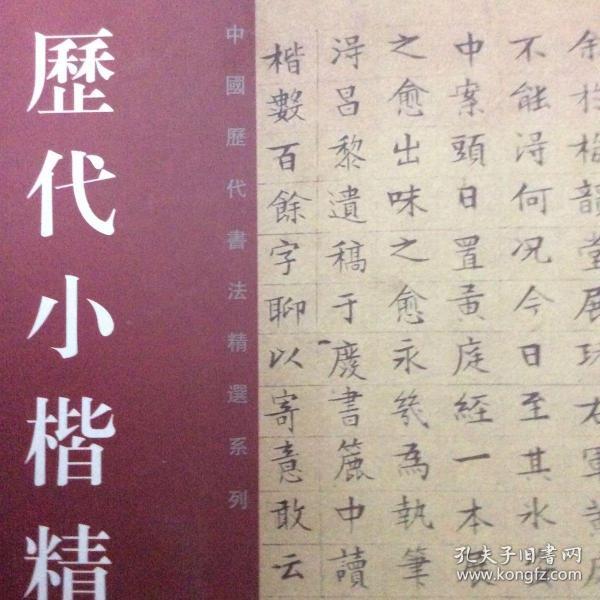 歷代小楷精
中國歷代書法精選系列
韻堂展玩右軍黃
不能淂何况今日至其
中案頭日置黃庭經一本
之愈出味之愈永幾為執筆
淂昌黎遺稿于廢書簏中讀
楷數百餘字聊以寄意敢云
孔夫子旧书网
www.kongfz.com